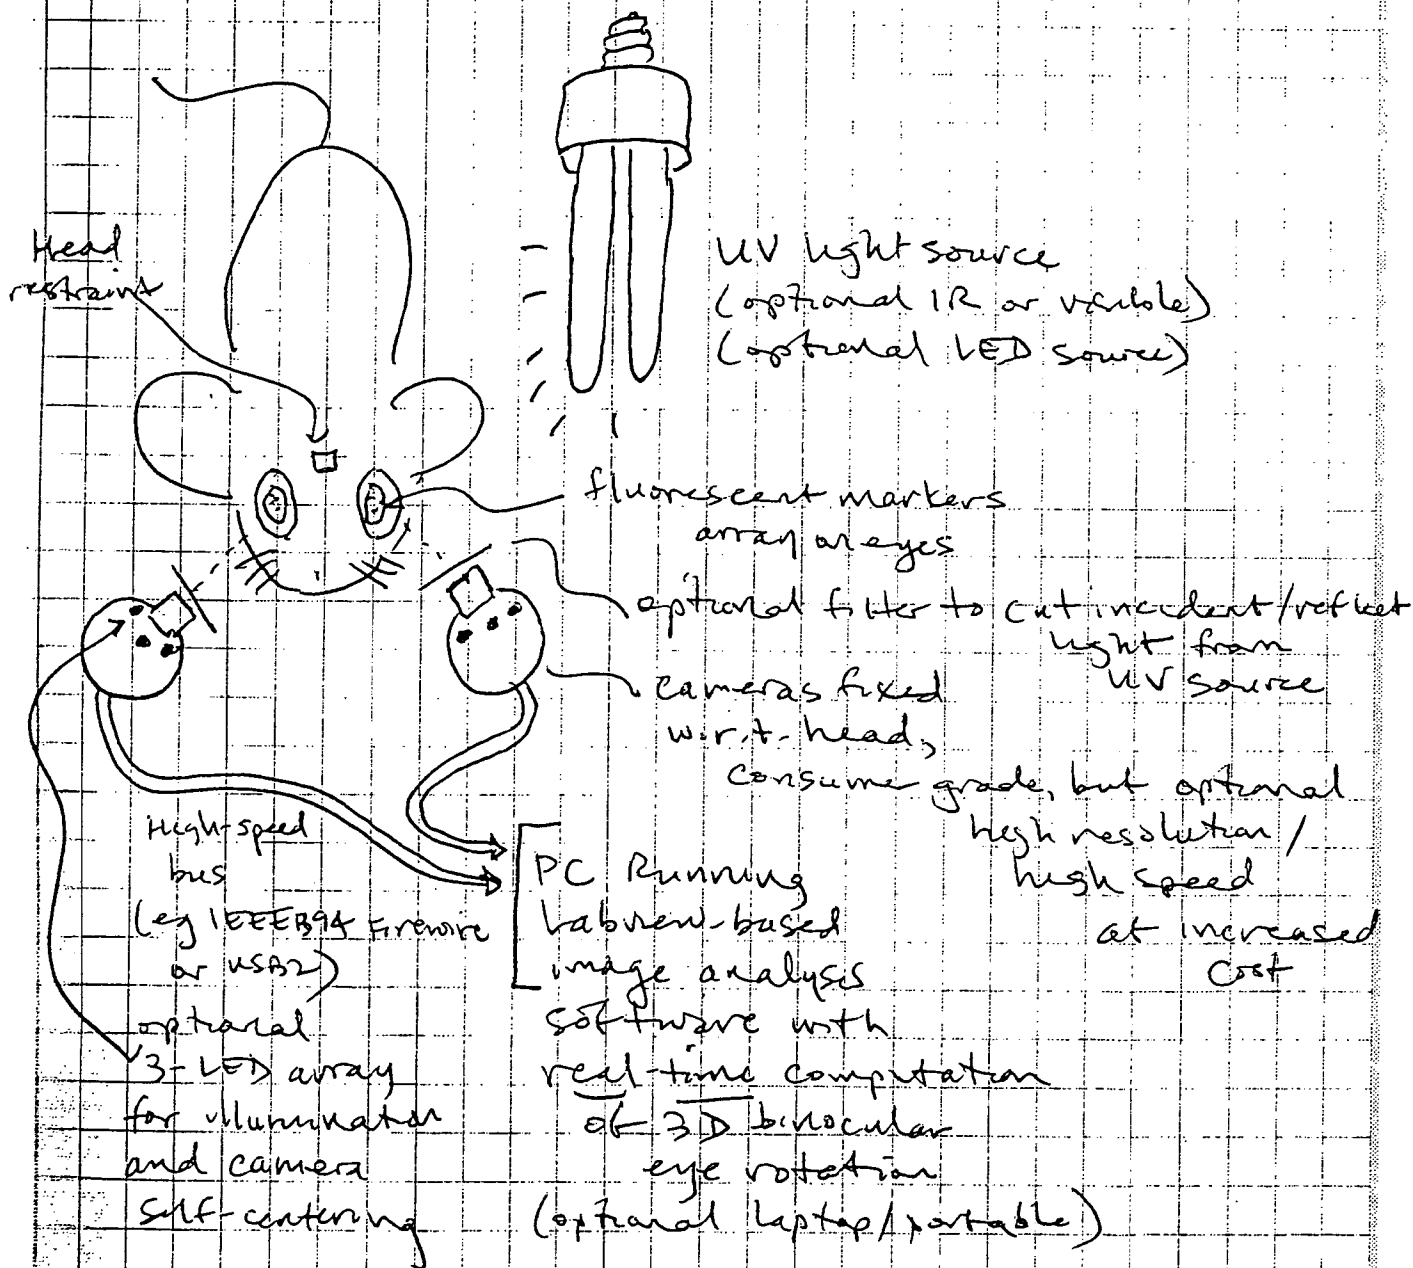 Head
restraint
UV light source
(optional IR or visible)
(optional LED source)
fluorescent markers
array on eyes
optional filter to cut incident/reflect
light from
UV source
cameras fixed
w.r.t. head,
consumer grade, but optional
high resolution/
high speed
at increased
cost
High-speed
bus
(eg IEEE1394 Firewire
or USB2)
optional
3-LED array
for illumination
and camera
self-centering
PC Running
Labview-based
image analysis
software with
real-time computation
of 3D binocular
eye rotation
(optional laptop/portable)